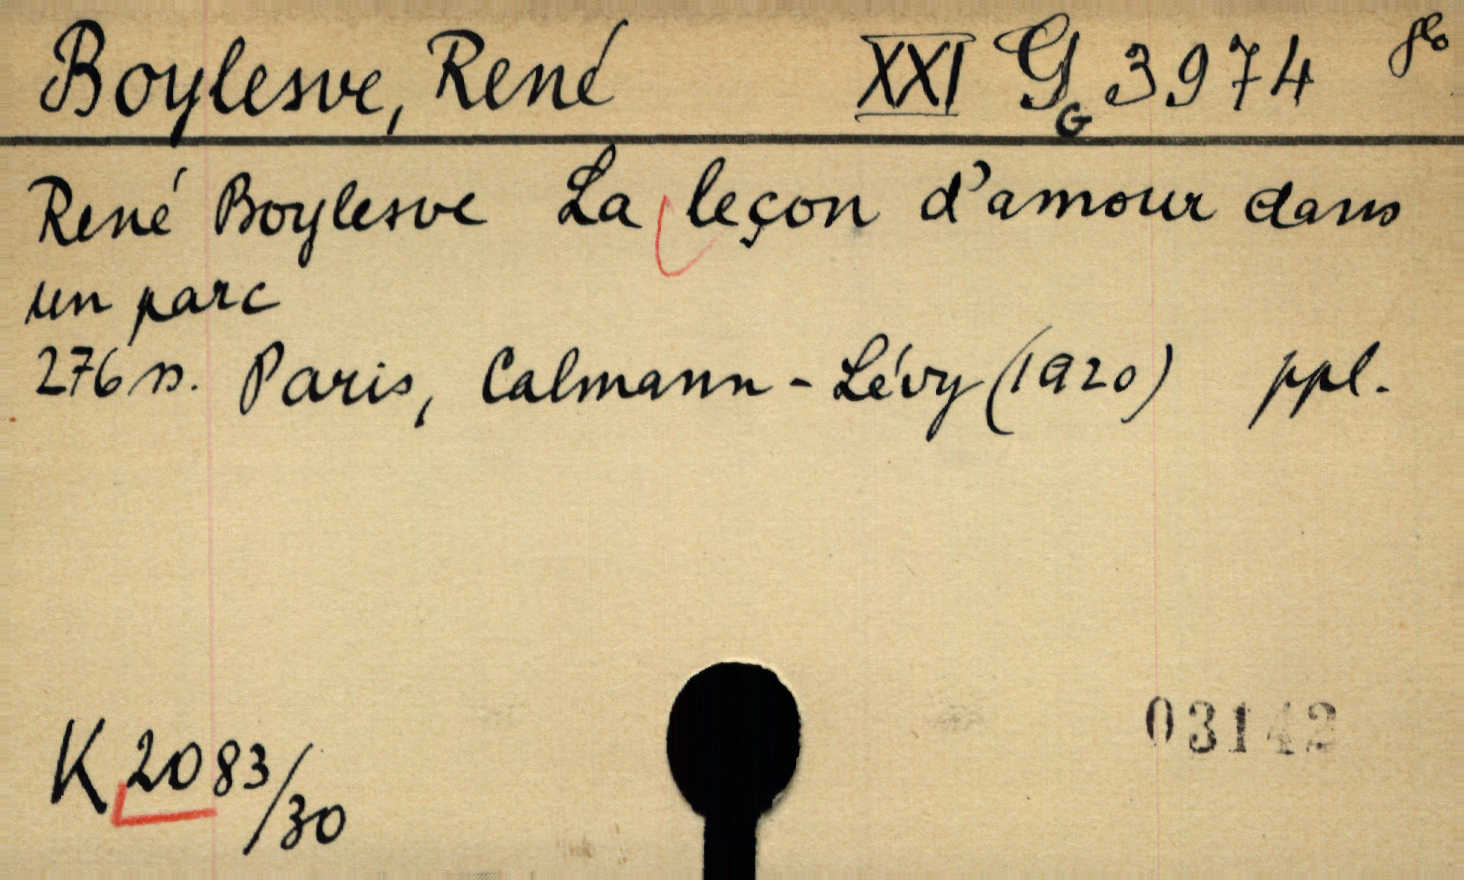 Boylesve, René XXI G G 3974
René Boylesve La leçon d'amour dans
un parc
276 s. Paris, Calmann-Lévy (1920) ppl.
K 2083/30
03142